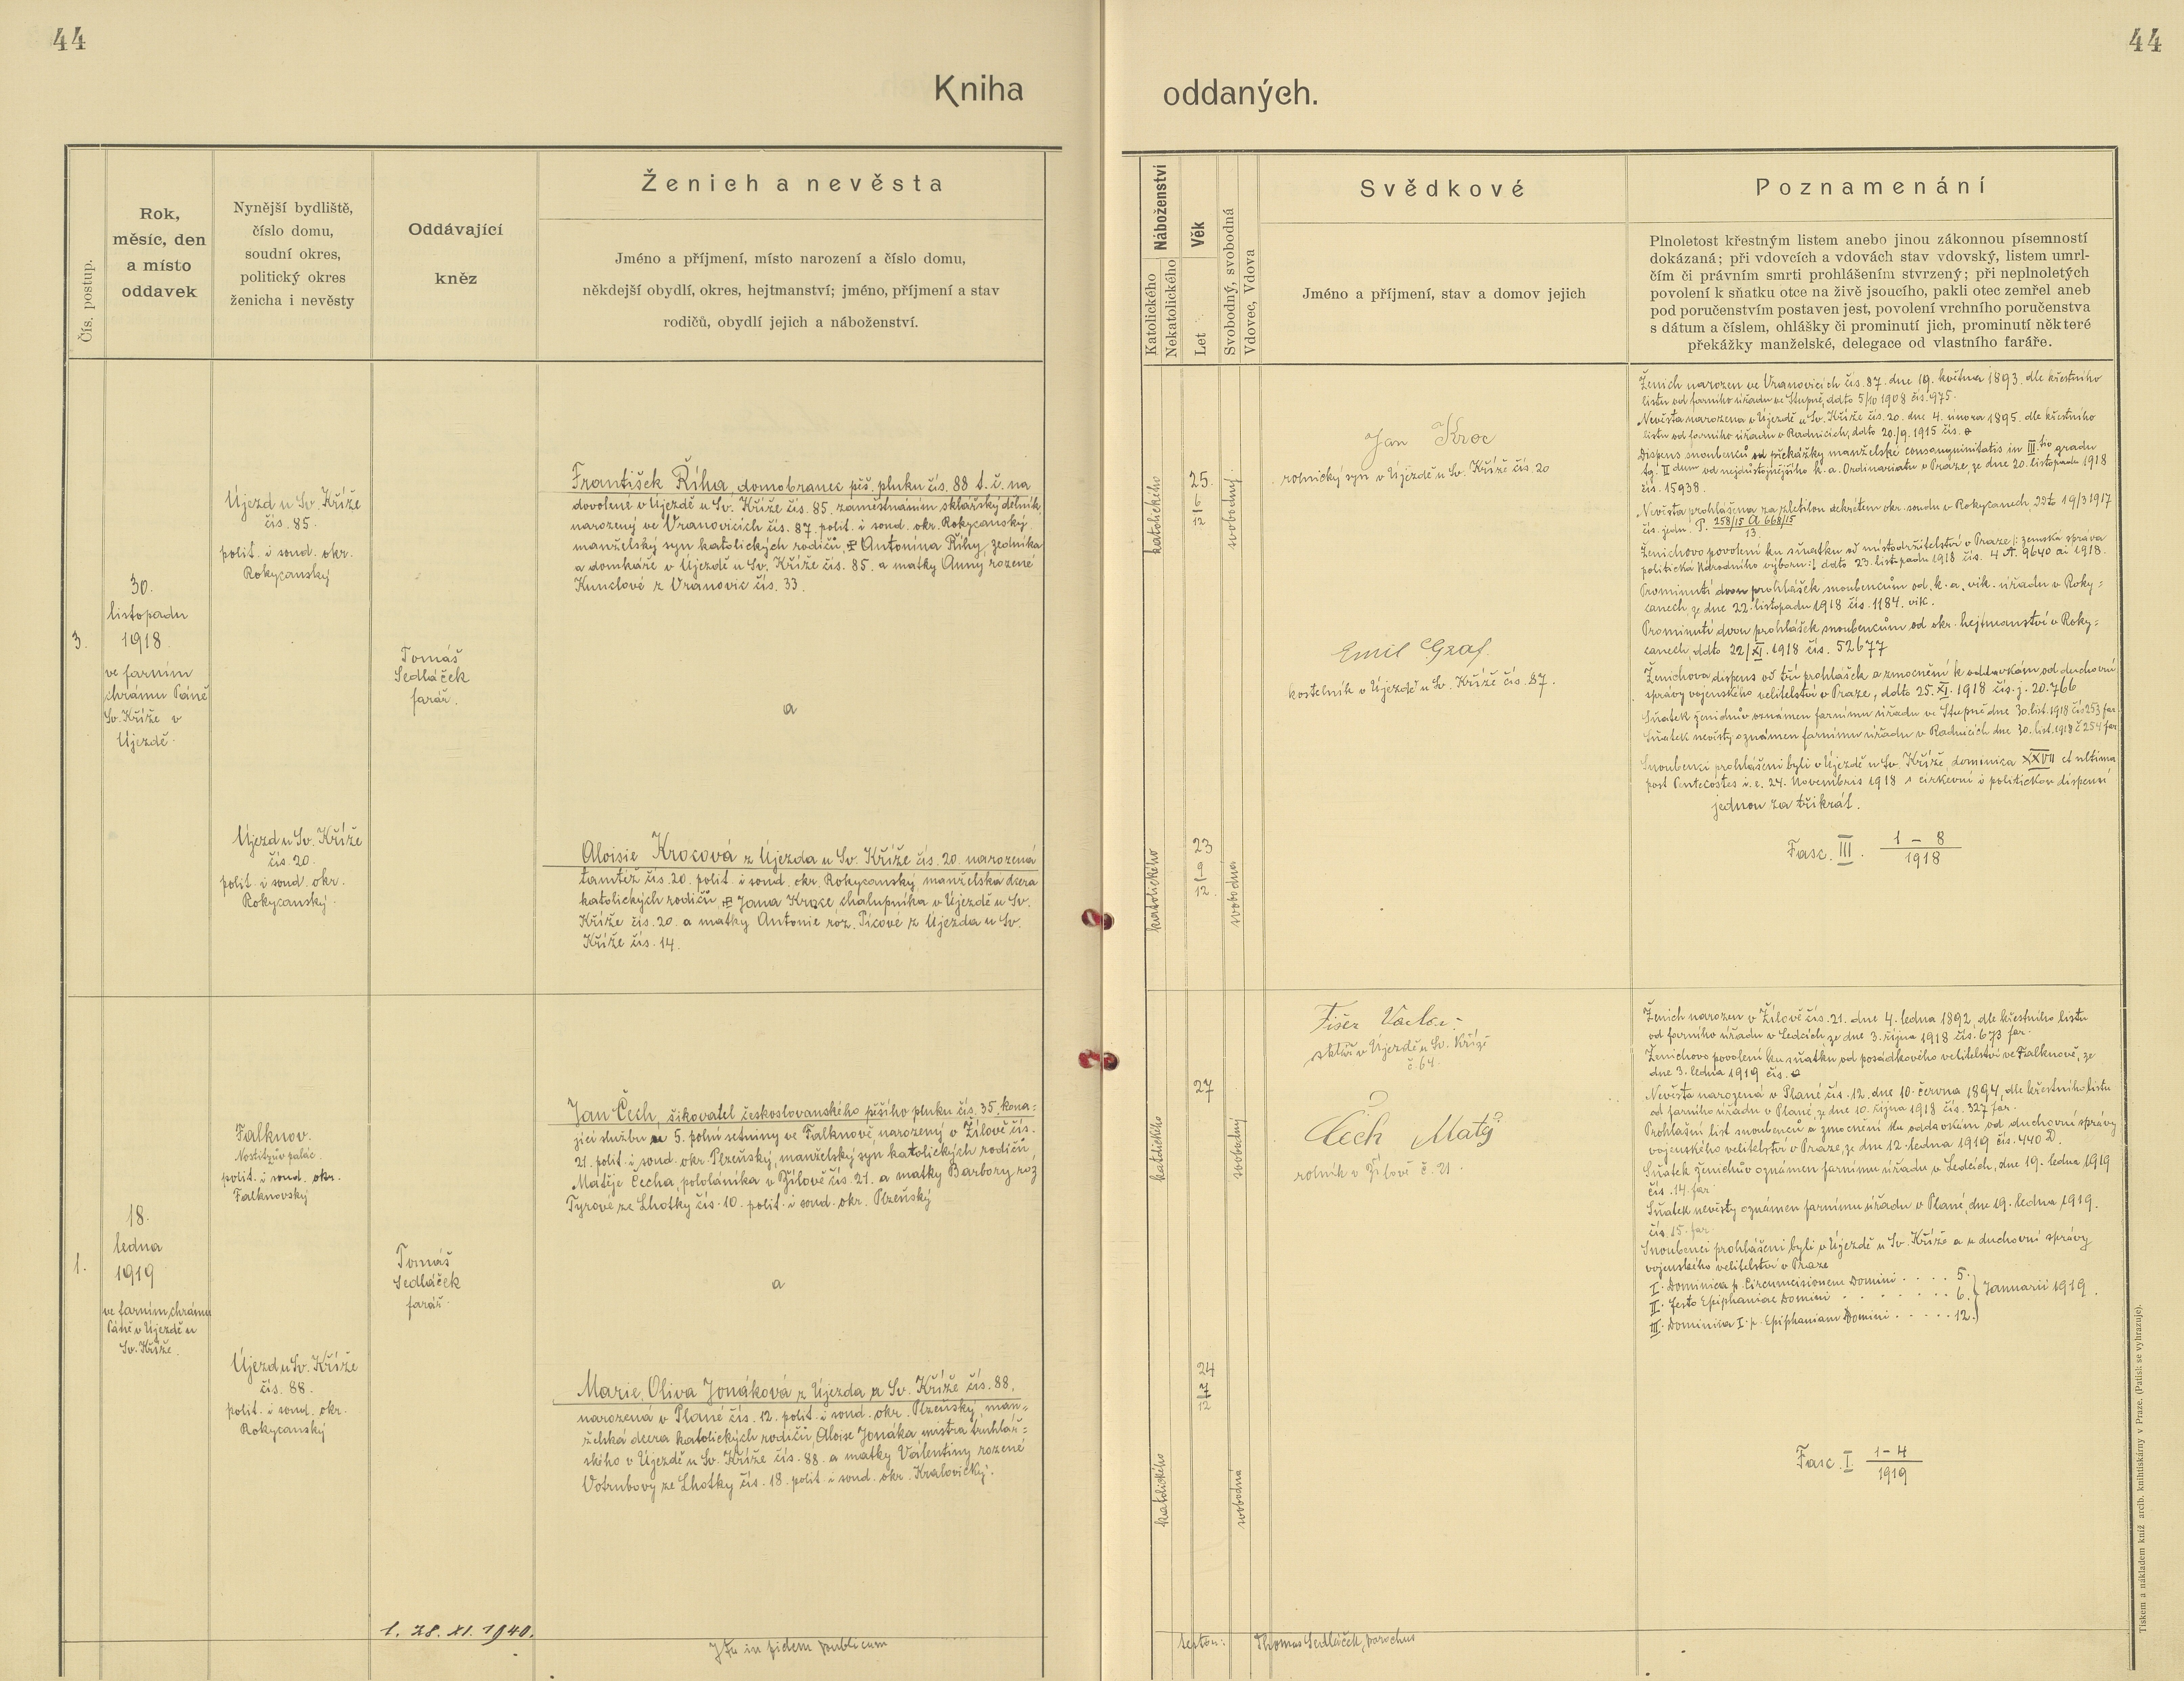 44
44
Kniha
oddaných.
Čís. postup.
Rok,
měsíc, den
a místo
oddavek
Nynější bydliště,
číslo domu,
soudní okres,
politický okres
ženicha i nevěsty
Oddávající
kněz
Ženich a nevěsta
Jméno a příjmení, místo narození a číslo domu,
někdejší obydlí, okres, hejtmanství; jméno, příjmení a stav
rodičů, obydlí jejich a náboženství.
Náboženství
Katolického
Nekatolického
Věk
Let
Svobodný, svobodná
Vdovec, Vdova
Svědkové
Jméno a příjmení, stav a domov jejich
Poznamenání
Plnoletost křestným listem anebo jinou zákonnou písemností
dokázaná; při vdovcích a vdovách stav vdovský, listem umrl-
čím či právním smrti prohlášením stvrzený; při neplnoletých
povolení k sňatku otce na živě jsoucího, pakli otec zemřel aneb
pod poručenstvím postaven jest, povolení vrchního poručenstva
s dátum a číslem, ohlášky či prominutí jich, prominutí některé
překážky manželské, delegace od vlastního faráře.
3.
30.
listopadu
1918
ve farním
chrámu Páně
Sv. Kříže v
Újezdě.
Újezd u Sv. Kříže
čís. 85.
polit. i soud. okr.
Rokycanský
Újezd u Sv. Kříže
čís. 20.
polit. i soud. okr.
Rokycanský.
Tomáš
Sedláček
farář.
František Říha, domobranec pěš. pluku čís. 88 t. č. na
dovolené v Újezdě u Sv. Kříže čís. 85. zaměstnáním sklářský dělník,
narozený ve Vranovicích čís. 87. polit. i soud. okr. Rokycanský.
manželský syn katolických rodičů, Antonína Říhy, zedníka
a domkáře v Újezdě u Sv. Kříže čís. 85. a matky Anny rozené
Kunclové z Vranovic čís. 33.
a
Aloisie Krocová z Újezda u Sv. Kříže čís. 20. narozená
tamtéž čís. 20. polit. i soud. okr. Rokycanský, manželská dcera
katolických rodičů, Jana Kroce chalupníka v Újezdě u Sv.
Kříže čís. 20. a matky Antonie roz. Pícové z Újezda u Sv.
Kříže čís. 14.
katolického
25.
6
12
svobodný
katolického
23
9
12
svobodna
Jan Kroc
rolnický syn v Újezdě u Sv. Kříže čís. 20
Emil Graf.
kostelník v Újezdě u Sv. Kříže čís. 87.
Ženich narozen ve Vranovicích čís. 87. dne 19. května 1893. dle křestního
listu od farního úřadu ve Stupně, ddto 5/10 1908 čís. 975.
Nevěsta narozena v Újezdě u Sv. Kříže čís. 20. dne 4. února 1895. dle křestního
listu od farního úřadu v Radnicích, ddto 20./9. 1915 čís.
Dispens snoubenců od překážky manželské consanguinitatis in III. tio gradu
tg. II dum od nejdůstojnějšího k. a. Ordinariatu v Praze, ze dne 20. listopadu 1918
čís. 15938.
Nevěsta prohlášena za zletilou dekretem okr. soudu v Rokycanech ddto 19/3 1917
čís. jedn. P. 258/15 A 668/15
13.
Ženichovo povolení ku sňatku od místodržitelství v Praze /: zemská správa
politická Národního výboru :/ ddto 23. listopadu 1918 čís. 4 A. 9640 ai 1918.
Prominutí dvou prohlášek snoubencům od. k. a. vik. úřadu v Roky-
canech, ze dne 22. listopadu 1918 čís. 1184. vik.
Prominutí dvou prohlášek snoubencům od okr. hejtmanství v Roky-
canech, ddto 22/XI. 1918 čís. 52677
Ženichova dispens od tří prohlášek a zmocnění k oddavkám od duchovní
správy vojenského velitelství v Praze, ddto 25. XI. 1918 čís. j. 20.766
Sňatek ženichův oznámen farnímu úřadu ve Stupně dne 30. list. 1918 čís 253 far.
Sňatek nevěsty oznámen farnímu úřadu v Radnicích dne 30. list. 1918 č 254 far.
Snoubenci prohlášeni byli v Újezdě u Sv. Kříže, dominica XXVII et ultima
post Pentecostes i. e. 24. Novembris 1918 s církevní i politickou dispensí
jednou za třikrát.
Fasc. III. 1 – 8
1918
1.
18.
ledna
1919
ve farním chrámu
Páně v Újezdě u
Sv. Kříže.
Falknov.
Nostitzův palác.
polit. i soud. okr.
Falknovský
Újezd u Sv. Kříže
čís. 88.
polit. i soud. okr.
Rokycanský
Tomáš
Sedláček
farář.
Jan Čech, šikovatel československého pěšího pluku čís. 35, kona-
jící službu u 5. polní setniny ve Falknově, narozený v Žilově čís.
21. polit. i soud. okr. Plzeňský, manželský syn katolických rodičů,
Matěje Čecha, pololáníka v Žilově čís. 21. a matky Barbory roz
Tyrové ze Lhotky čís. 10. polit. i soud. okr. Plzeňský
a
Marie Oliva Jonáková z Újezda u Sv. Kříže čís. 88.
narozená v Plané čís. 12. polit. i soud. okr. Plzeňský, man-
želská dcera katolických rodičů, Aloise Jonáka mistra truhlář-
ského v Újezdě u Sv. Kříže čís. 88. a matky Valentiny rozené
Votrubovy ze Lhotky čís. 18. polit. i soud. okr. Kralovický.
katolického
27
svobodný
katolického
24
7
12
svobodná
Fišer Václav
sklář v Újezdě u Sv. Kříže
č. 64.
Čech Matěj
rolník v Žilově č. 21.
Ženich narozen v Žilově čís. 21. dne 4. ledna 1892, dle křestního listu
od farního úřadu v Ledcích ze dne 3. října 1918 čís. 673 far.
Ženichovo povolení ku sňatku od posádkového velitelství ve Falknově, ze
dne 3. ledna 1919 čís.
Nevěsta narozená v Plané čís. 12. dne 10. června 1894, dle křestního listu
od farního úřadu v Plané, ze dne 10. října 1918 čís. 327 far.
Prohlašní list snoubenců a zmocnění ku oddavkám od duchovní správy
vojenského velitelství v Praze, ze dne 12. ledna 1919 čís. 440 D.
Sňatek ženichův oznámen farnímu úřadu v Ledcích, dne 19. ledna 1919
čís. 14. far
Sňatek nevěsty oznámen farnímu úřadu v Plané, dne 19. ledna 1919.
čís. 15. far.
Snoubenci prohlášeni byli v Újezdě u Sv. Kříže a u duchovní správy
vojenského velitelství v Praze
I. Dominica p. Circumcisionem Domini . . . . 5.
II. Festo Epiphaniae Domini . . . . . . . 6. Januarii 1919.
III. Dominica I. p. Epiphaniam Domini . . . . . 12.
Fasc. I. 1 – 4
1919
1. 28. XI. 1940.
Ita in fidem publicam
Thomas Sedláček, parochus
Tiskem a nákladem kníž. arcib. knihtiskárny v Praze. (Patisk se vyhrazuje).